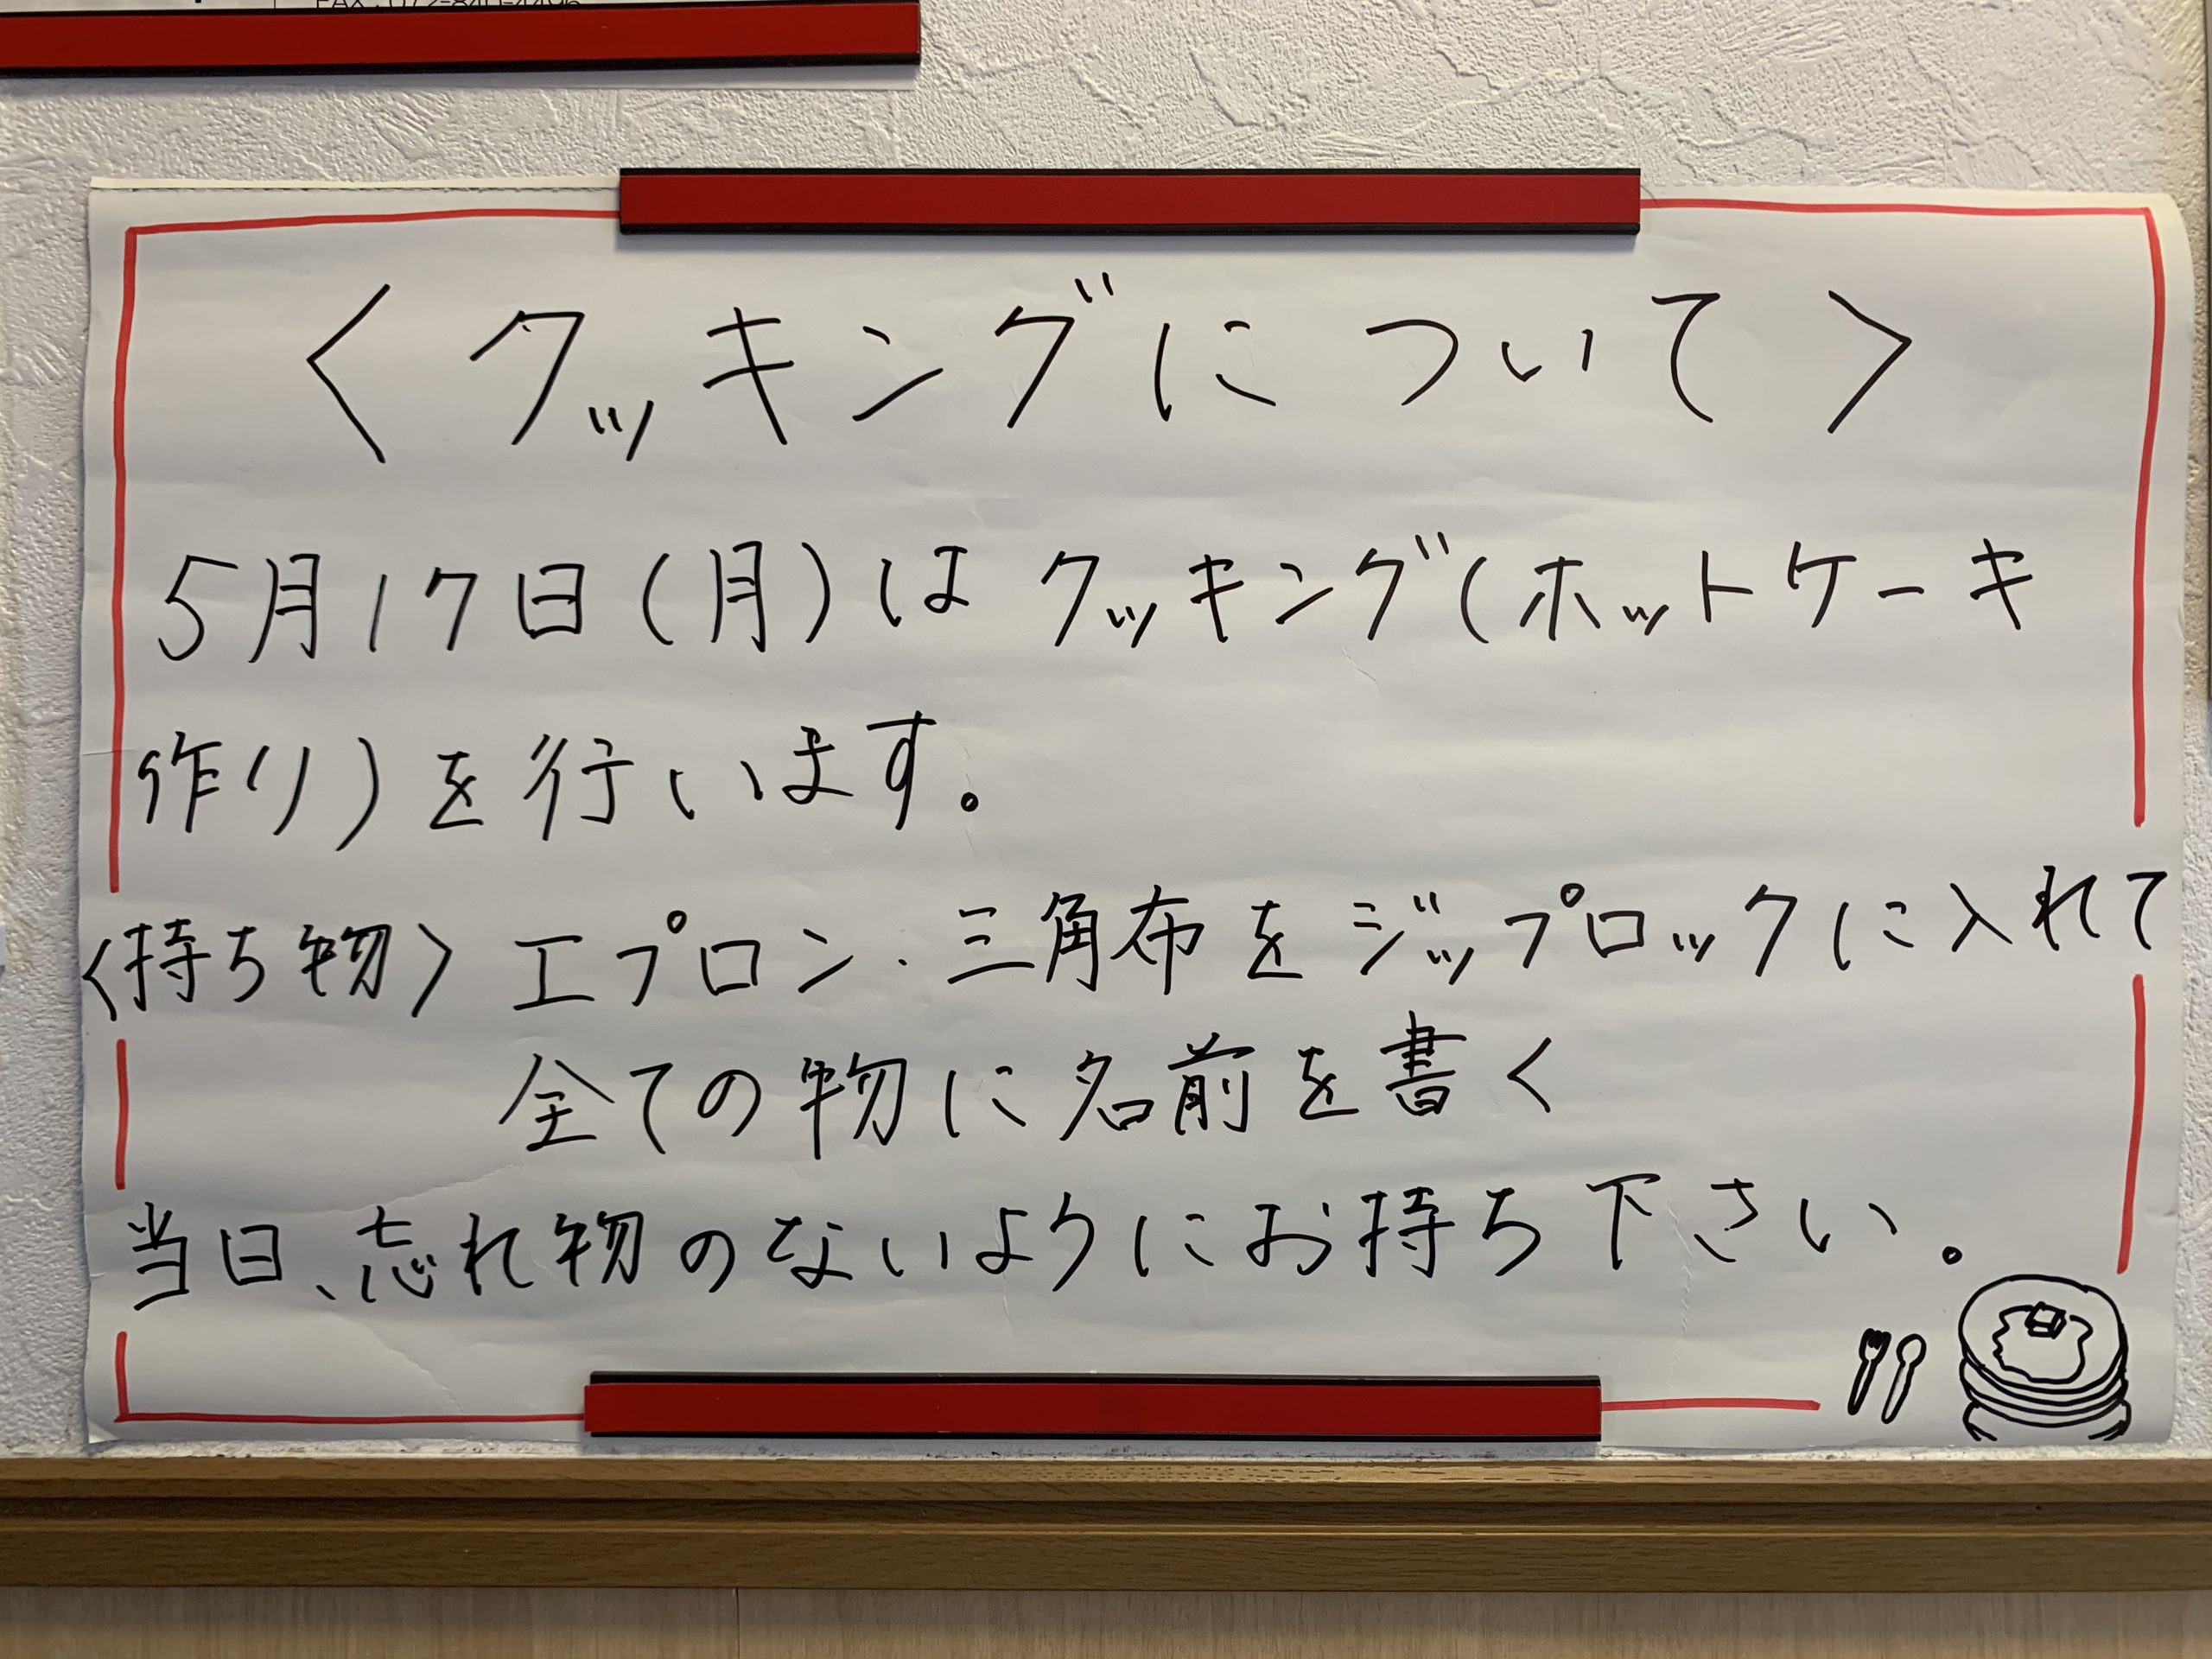 〈クッキングについて〉
5月17日(月)はクッキング(ホットケーキ
作り)を行います。
〈持ち物〉エプロン・三角布をジップロックに入れて
全ての物に名前を書く
当日、忘れ物のないようにお持ち下さい。